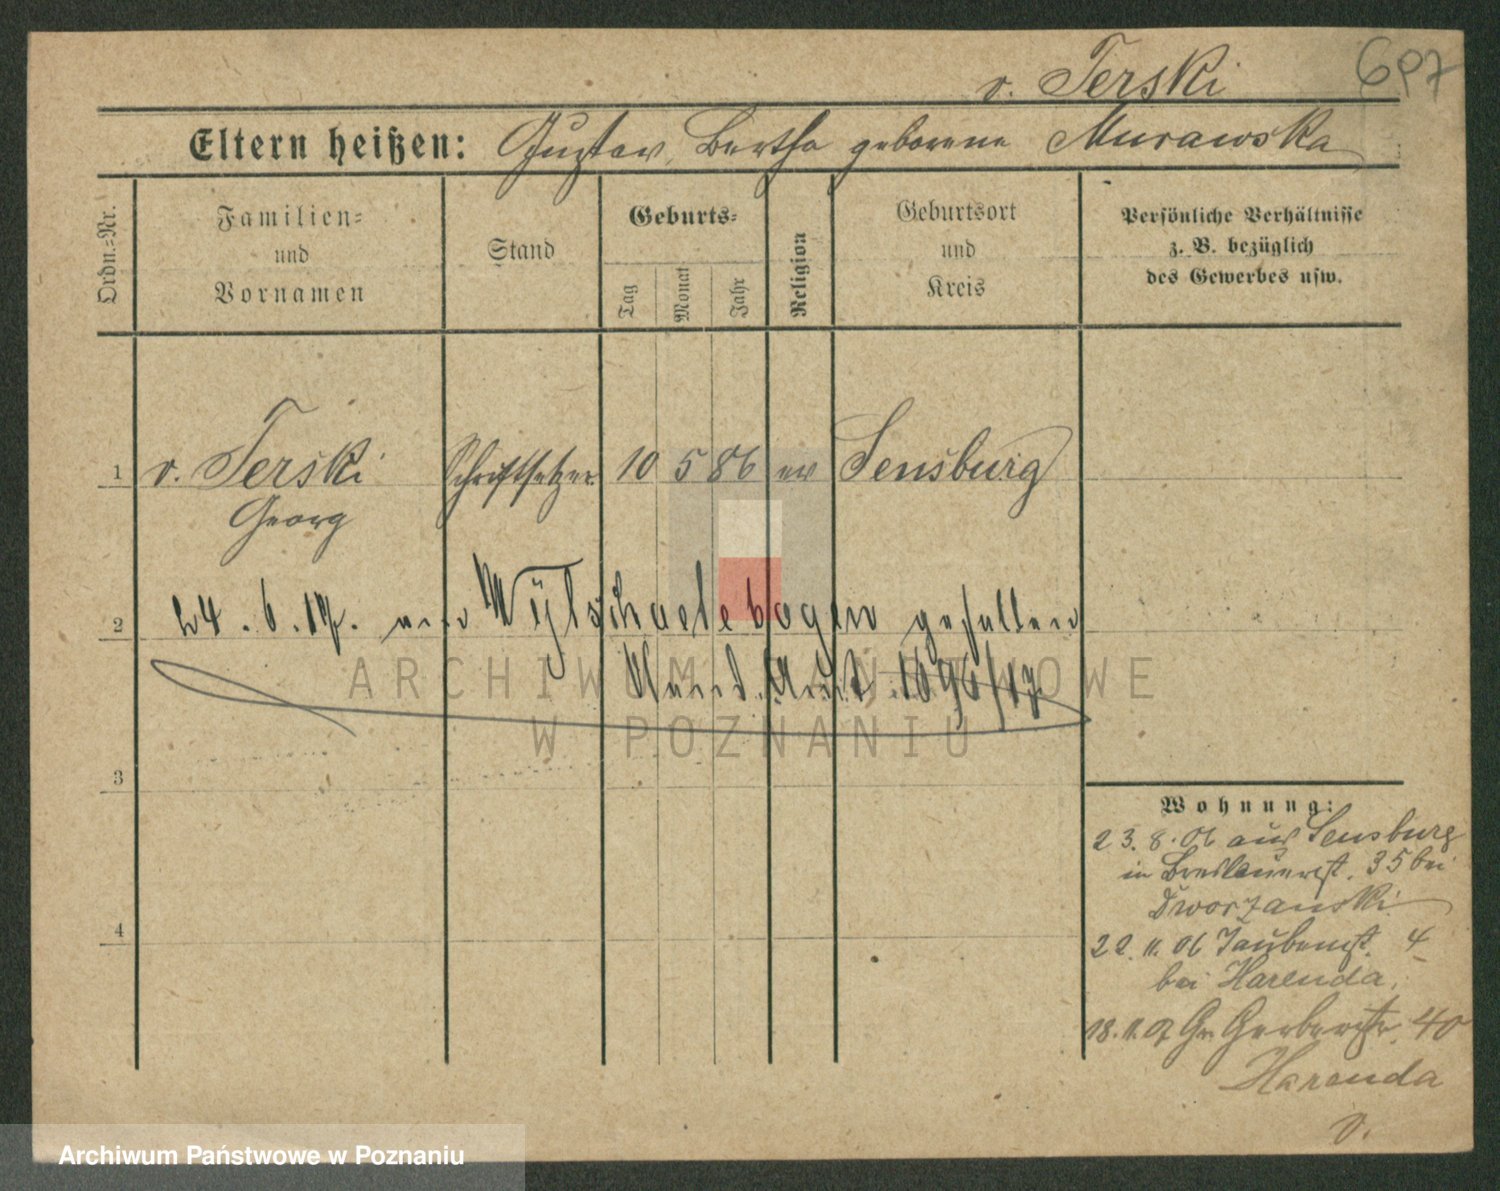 v. Terski
697
Eltern heißen: Gustav, Bertha geborene Murawska
Ordn.-Nr.
Familien-
und
Vornamen
Stand
Geburts-
Tag
Monat
Jahr
Religion
Geburtsort
und
Kreis
Persönliche Verhältnisse
z. B. bezüglich
des Gewerbes usw.
1 v. Terski Schriftsetzer 10 5 86 ev Sensburg
Georg
2 24. 6. 17. am Wytschaetebogen gefallen
1696/17
ARCHIWUM PAŃSTWOWE
W POZNANIU
3
4
Wohnung:
23. 8. 06 aus Sensburg
in Breslauerst. 35 bei
Dworzanski
22. 11. 06 Taubenst. 4
bei Harenda.
18. 11. 07 Gr. Gerberstr. 40
Harenda
v.
Archiwum Państwowe w Poznaniu